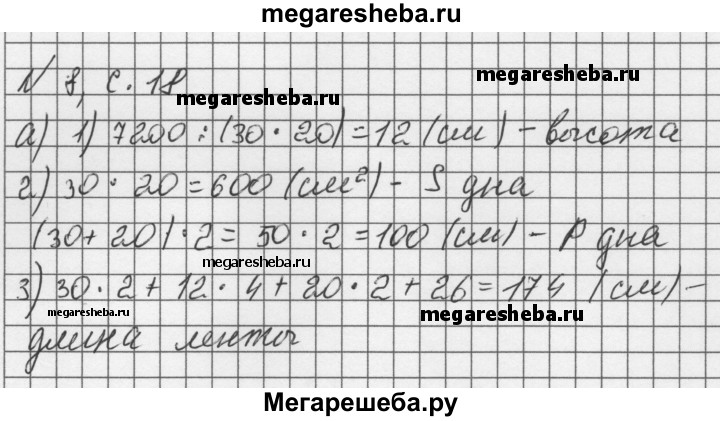 megaresheba.ru
N 8, с. 18
megaresheba.ru
megaresheba.ru
а) 1) 7200 : (30 · 20) = 12 (см) - высота
2) 30 · 20 = 600 (см²) - S дна
(30 + 20) · 2 = 50 · 2 = 100 (см) - P дна
megaresheba.ru
3) 30 · 2 + 12 · 4 + 20 · 2 + 26 = 174 (см) -
megaresheba.ru
megaresheba.ru
длина ленты
Мегарешеба.ру